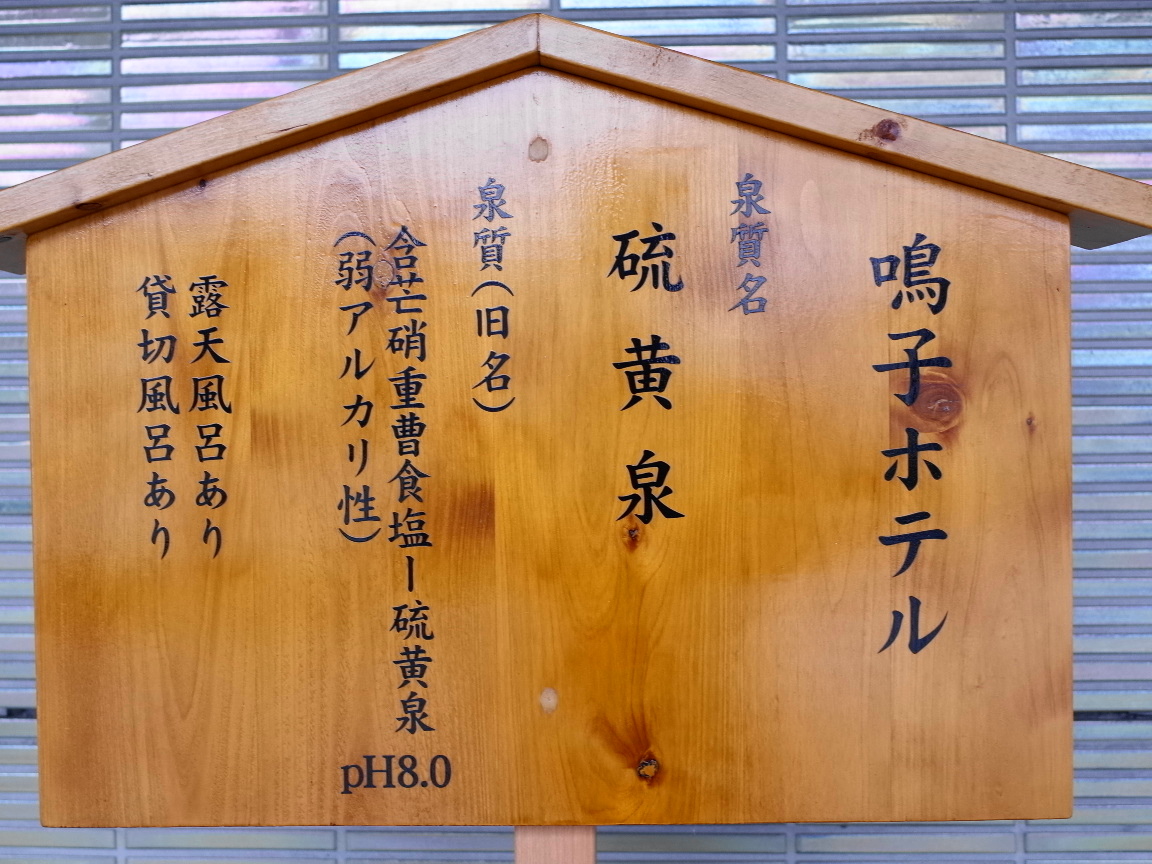 鳴子ホテル
泉質名
硫黄泉
泉質(旧名)
含芒硝重曹食塩ー硫黄泉
(弱アルカリ性)
pH8.0
露天風呂あり
貸切風呂あり